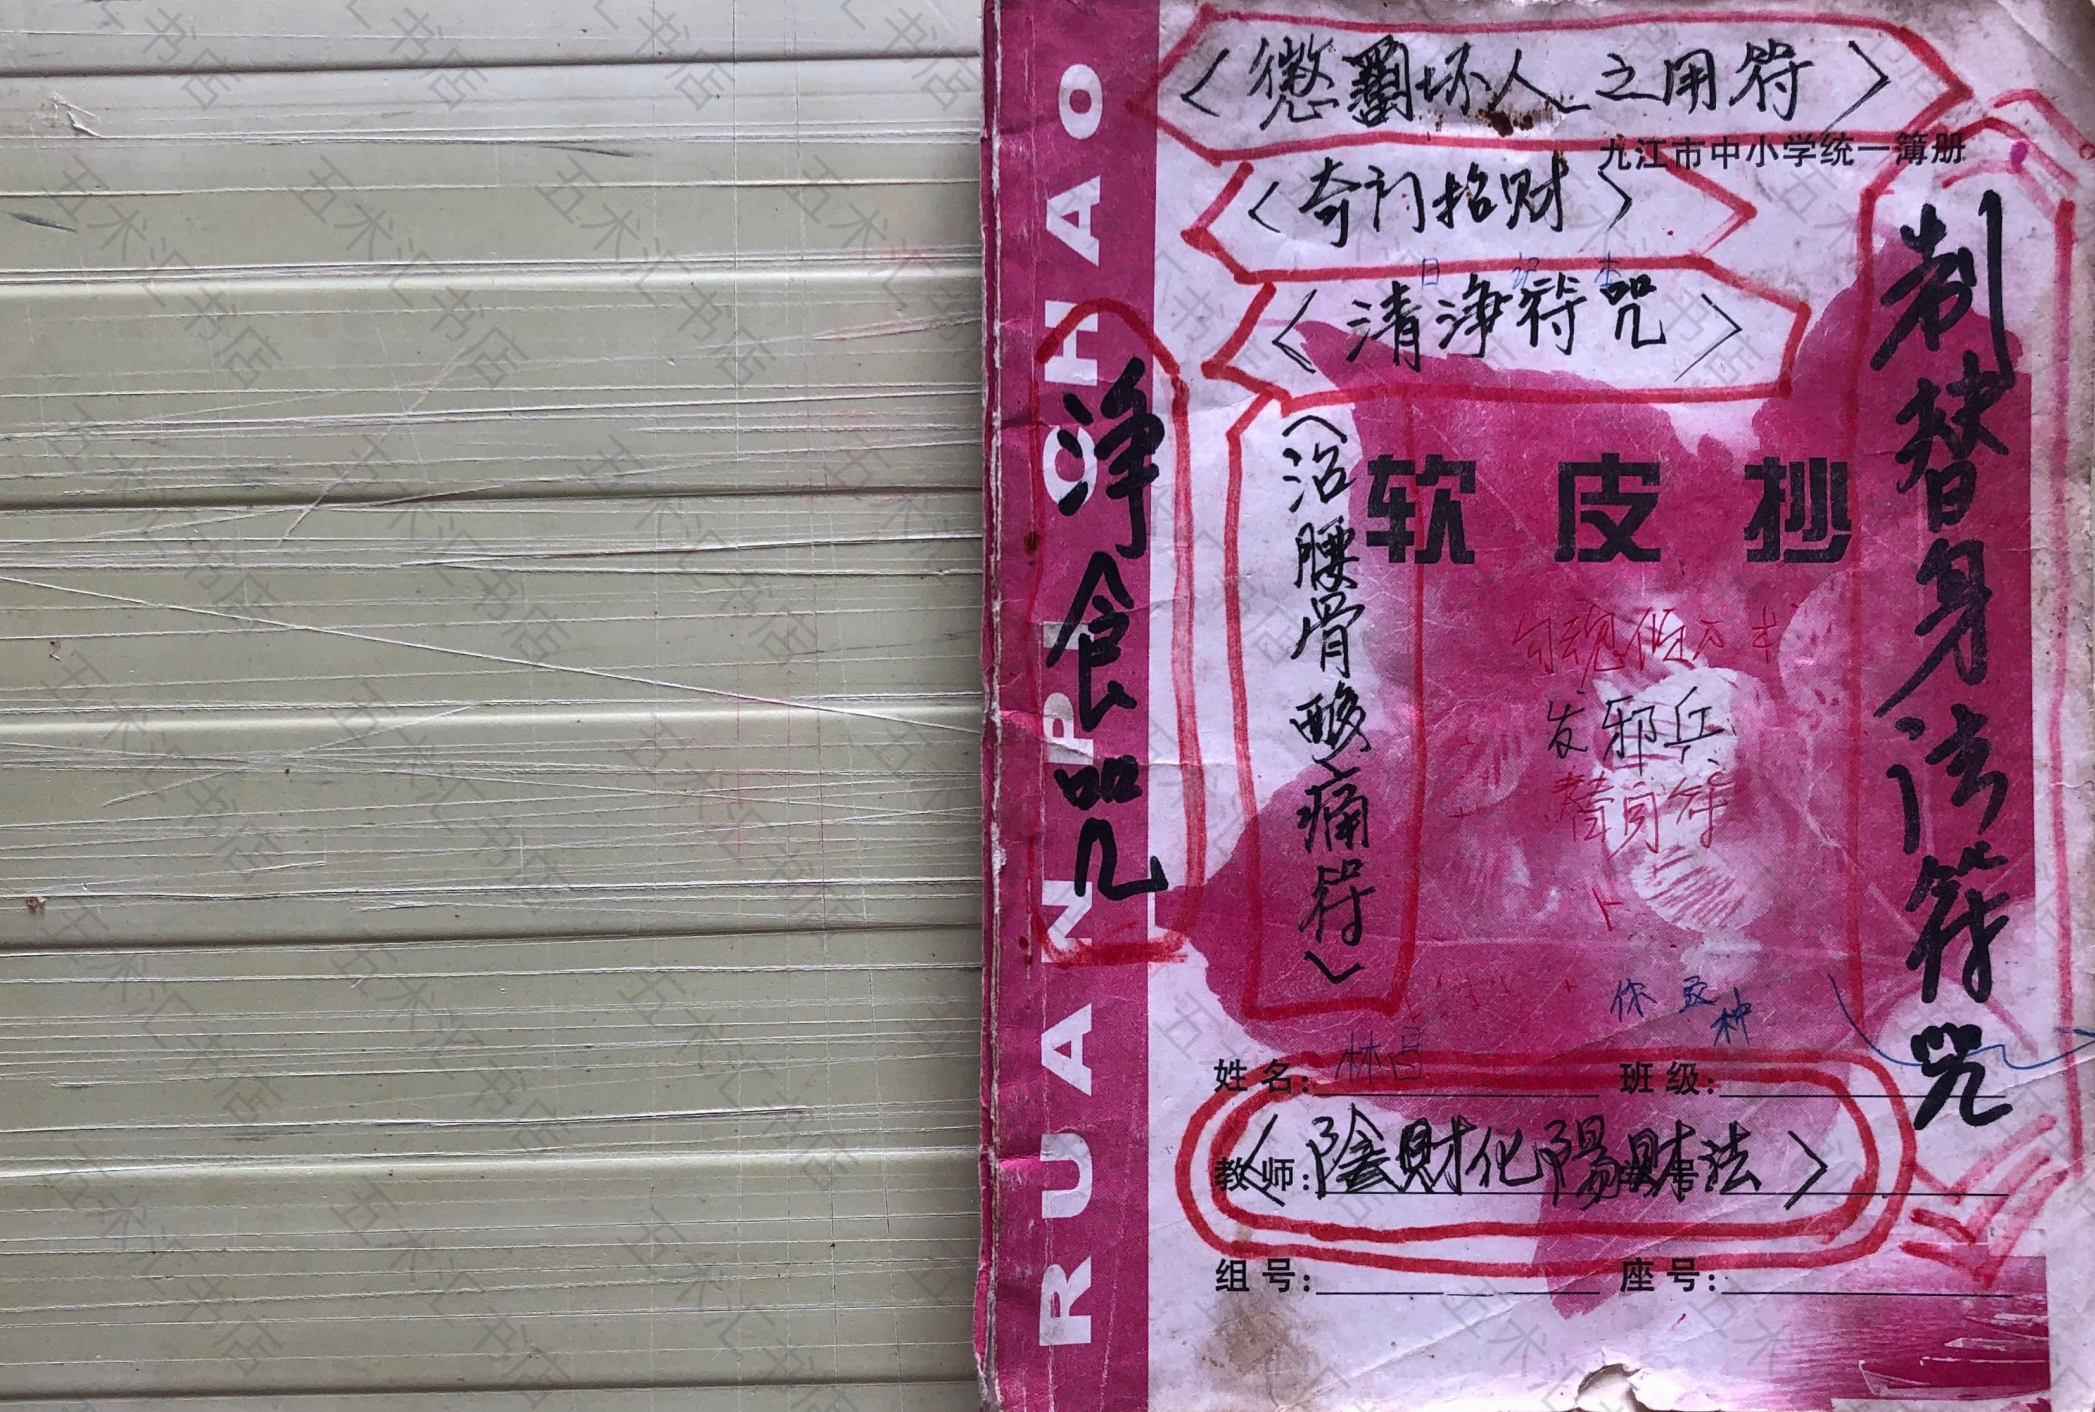 〈懲罰坏人之用符〉
九江市中小学统一簿册
〈奇门招财〉
日记本
〈清浄符咒〉
制替身法符咒
净食咒
RUANPICHAO
〈治腰骨酸痛符〉
软皮抄
发邪兵
替身符
你这种
姓名：林
班级：
〈陰財化陽財法〉
教师：
组号：
座号：
五术汇书店